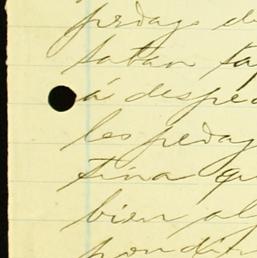 pedazo de
tatan ta
á desped
les pedaz
tina qu
bien al
pondir